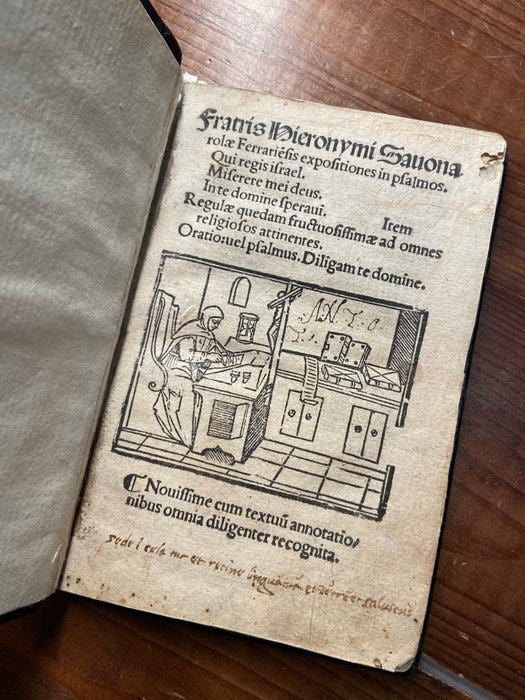 Fratris Hieronymi Savona
rolæ Ferrariēsis expositiones in psalmos.
Qui regis israel.
Miserere mei deus.
In te domine speraui. Item
Regulæ quedam fructuosissimæ ad omnes
religiosos attinentes.
Oratio: uel psalmus. Diligam te domine.
AN T. o.
T. o.
¶ Nouissime cum textuū annotatio/
nibus omnia diligenter recognita.
sede ī cela et retine linguā